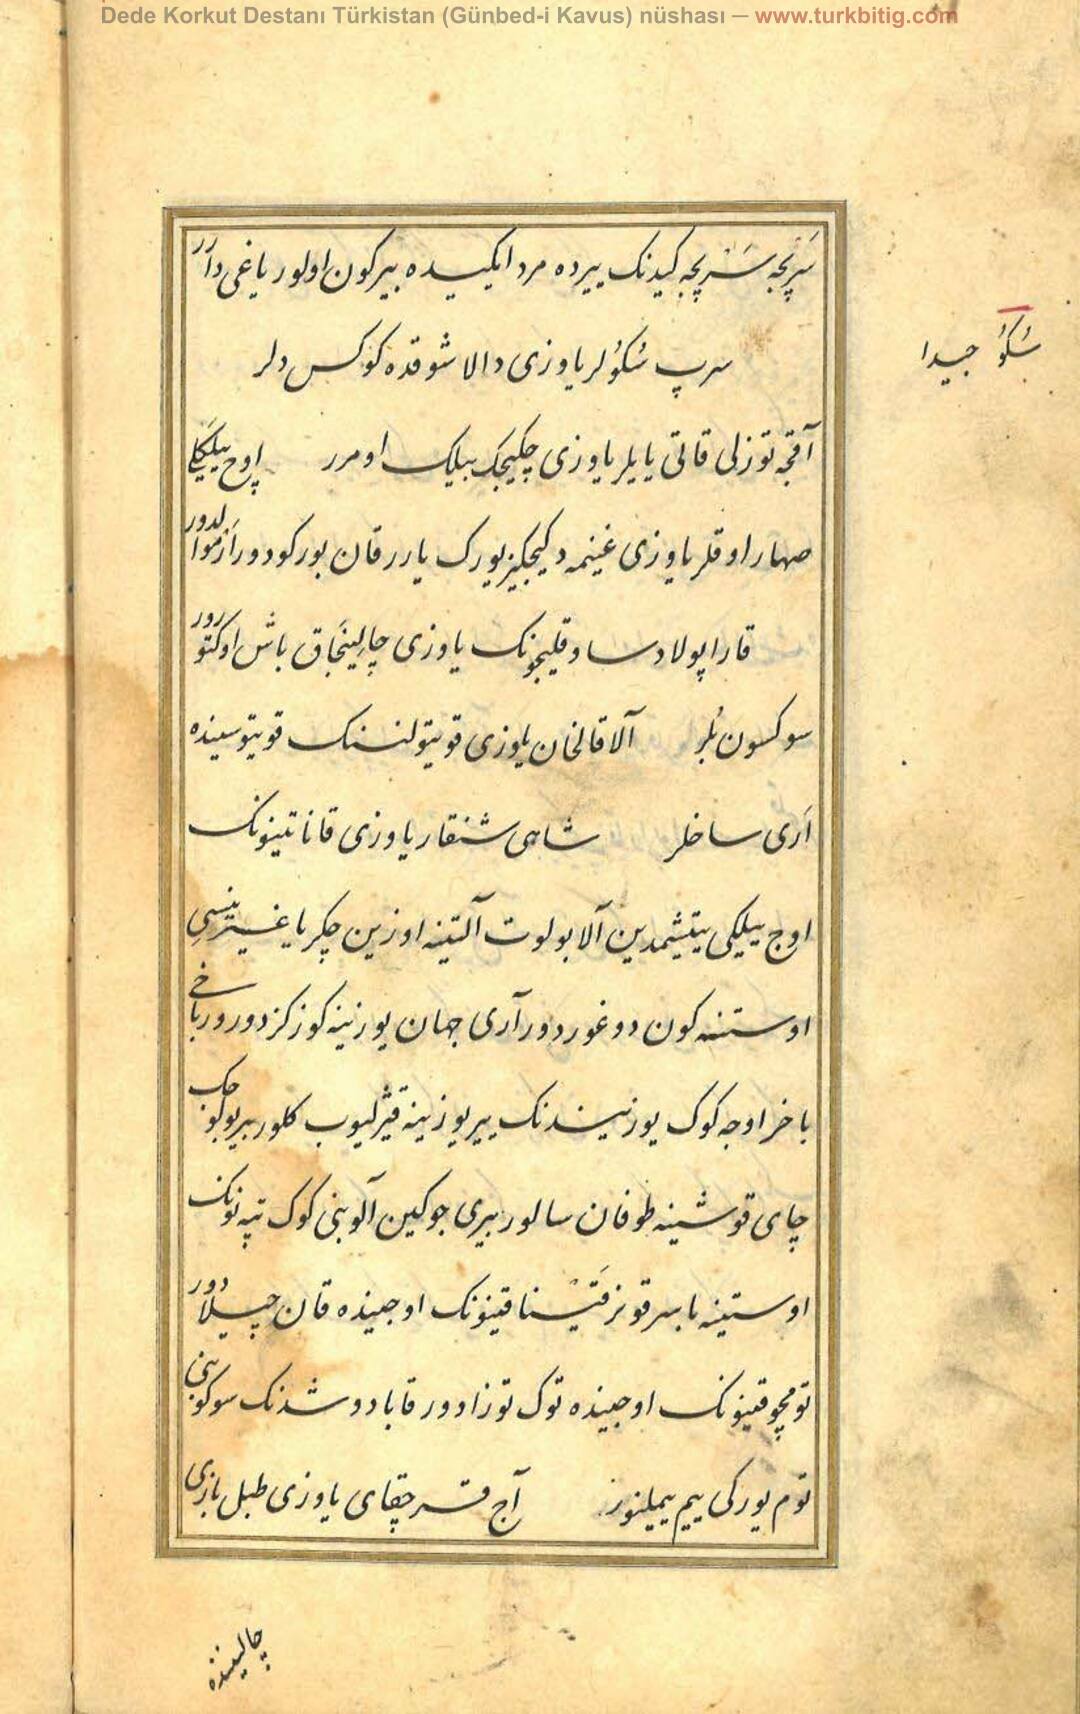 Dede Korkut Destanı Türkistan (Günbed-i Kavus) nüshası — www.turkbitig.com
سَرپچه سَرپچه کیدنک ییرده مرد ایکیده بیر کون اولور یاغی دارَر
سُکوُ جیدا
سرپ سُکوُلر یاوزی دالاشوقده کوکس دلر
آقچه توزلی قاتی یایلر یاوزی چکیجک بیلک اومرر اوچ ییلکلی
صهار اوقلر یاوزی غنیمه دکیجکیز یورک یارر قان بورکودور
قارا پولاد ساو قلیجونک یاوزی چالینجاق باش اوکتورور
سوکسون بُلر آلا قالخان یاوزی قویتولننک قویتوسینده
اَری ساخلر شاهی شنقار یاوزی قاناتینونک
اوچ ییلکی ییتیشمدین آلا بولوت آلتینه اوزین چکر یاغیرینسی
اوستنه کون دوغوردور آری جهان یوزینه کوز کزدورور باخ
باخر اوجه کوک یوزیندنک ییر یوزینه قیژلیوب کلور بیر بوکوجک
چای قوشینه طوفان سالور بیری جوکین آلوبنی کوک تپه نونک
اوستینه باسر قونر قتیناقینونک اوجینده قان چیلادور
تومچوقینونک اوجینده توک توزادور قابا دوشدنک سوکوبنی
توم یورکی ییم ییملینور آج قرچقای یاوزی طبل بازی
چالینده